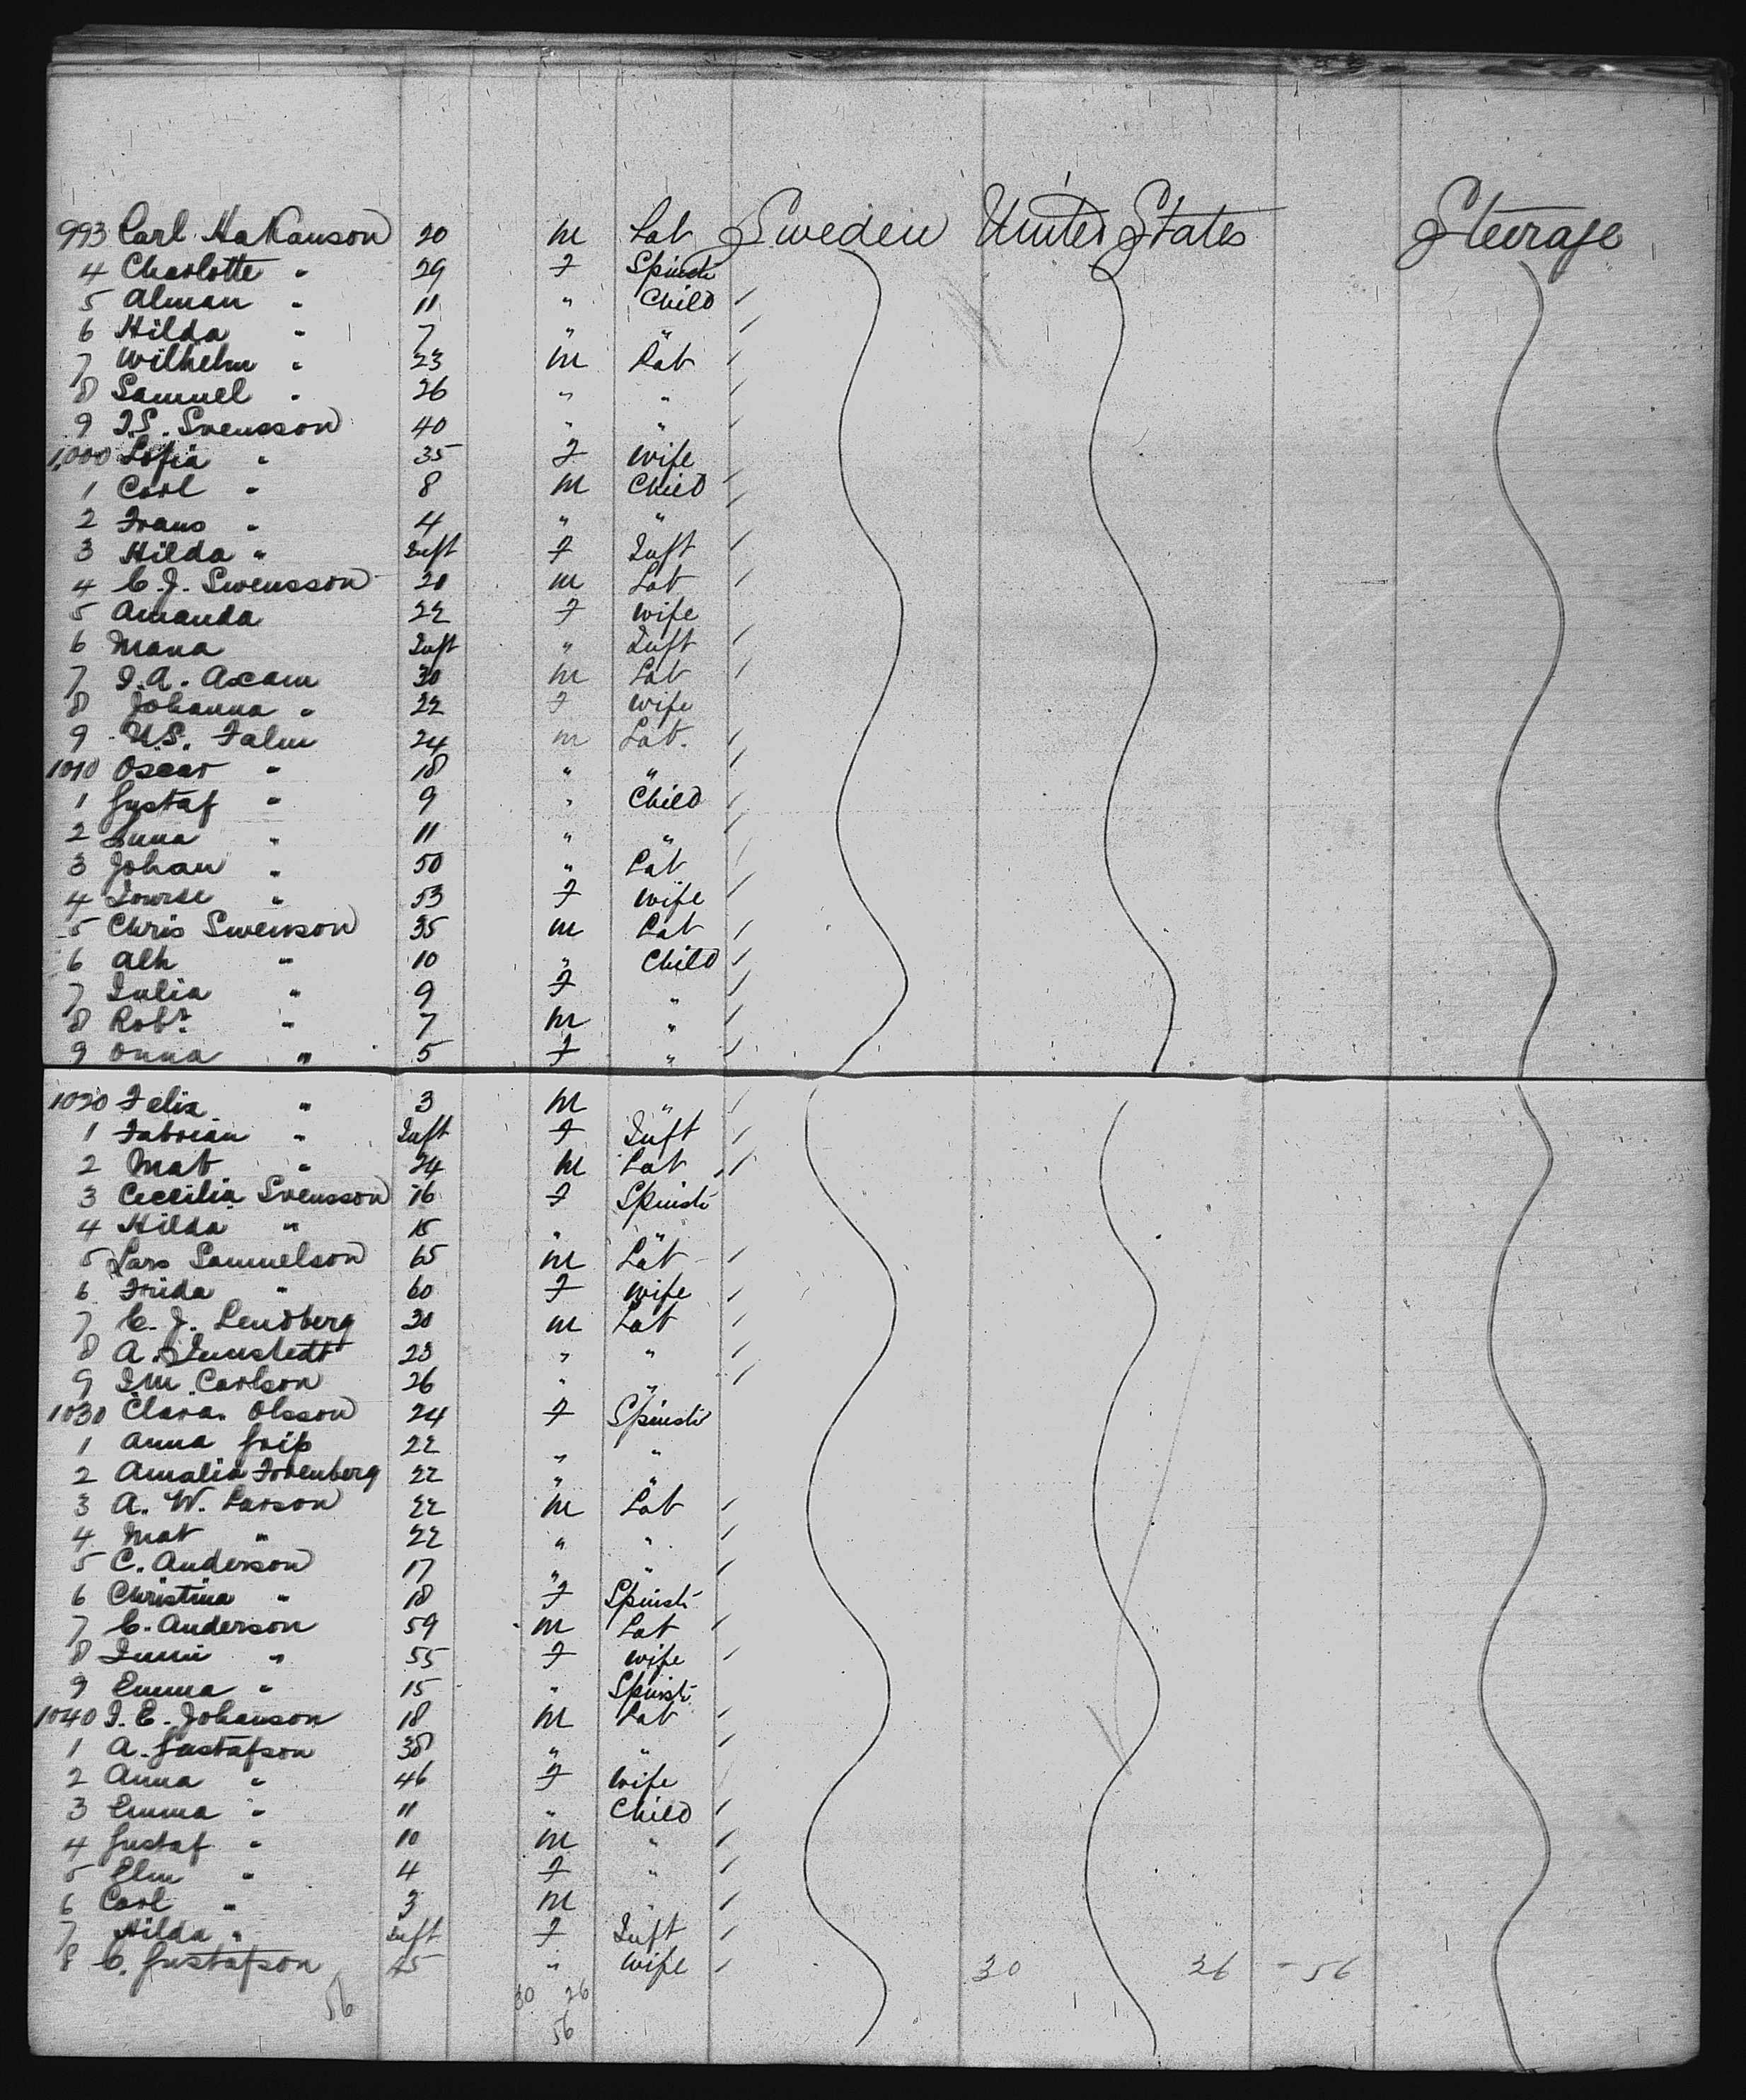 993 Carl HaKanson 20 m Lab Sweden United States Steerage
4 Charlotte " 29 F Spinstr
5 Alman " 11 " Child
6 Hilda " 7 " "
7 Wilhelm " 23 m Lab
8 Samuel " 26 " "
9 J.S. Svensson 40 " "
1,000 Sofia " 35 F wife
1 Carl " 8 m Child
2 Frans " 4 " "
3 Hilda " Inft F Inft
4 C.J. Swensson 20 m Lab
5 Amanda 22 F wife
6 Maria Inft " Inft
7 J.A. Axam 30 m Lab
8 Johanna " 22 F wife
9 N.S. Falm 24 m Lab.
1010 Oscar " 18 " "
1 Gustaf " 9 " Child
2 Anna " 11 " "
3 Johan " 50 " Lab
4 Lowise " 53 F wife
5 Chris Swenson 35 m Lab
6 Alh " 10 " Child
7 Julia " 9 F "
8 Robt " 7 m "
9 Onna " 5 F "
1020 Felix " 3 m "
1 Fabrian " Inft F Inft
2 Mat " 24 m Lab
3 Cecilia Svensson 16 F Spinstr
4 Hilda " 15 " "
5 Lars Samuelson 65 m Lab
6 Frida " 60 F wife
7 C.J. Lendberg 30 m Lab
8 A. 23 " "
9 J.M. Carlson 26 " "
1030 Clara Olsson 24 F Spinstr
1 Anna Grip 22 " "
2 Amalia 22 " "
3 A. W. Larson 22 m Lab
4 Mat " 22 " "
5 C. Anderson 17 " "
6 Christina " 18 F Spinstr
7 C. Anderson 59 m Lab
8 " 55 F wife
9 Emma " 15 " Spinstr
1040 J.E. Johanson 18 m Lab
1 A. Gustafson 38 " "
2 Anna " 46 F wife
3 Emma " 11 " Child
4 Gustaf " 10 m "
5 Elin " 4 F "
6 Carl " 3 m "
7 Hilda " Inft F Inft
8 C. Gustafson 45 " wife 30 26 - 56
56 30 26
56